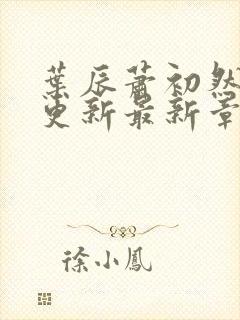 葉辰蕭初然
更新最新章
徐小鳳